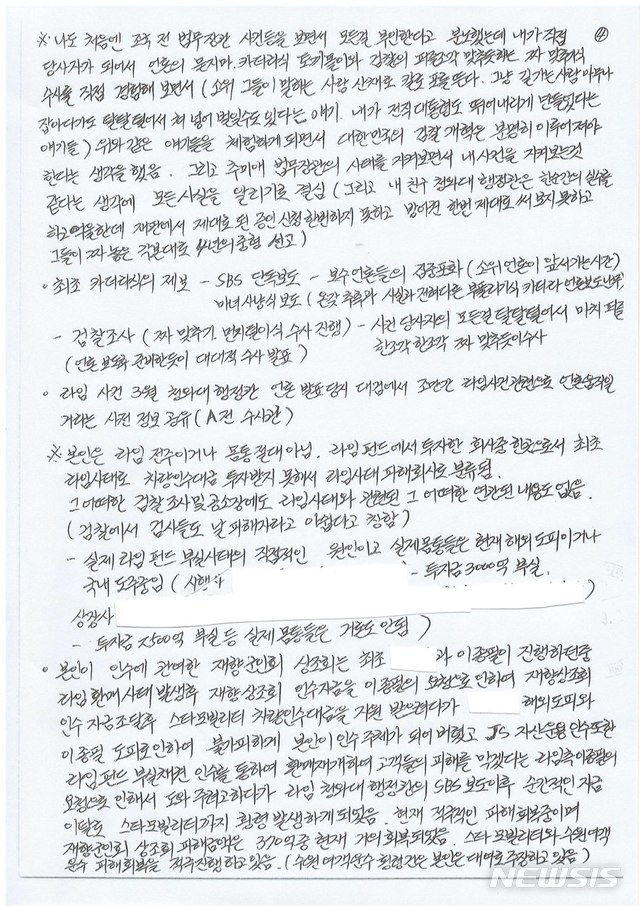 ④
※ 나도 처음엔 조국 전 법무장관 사건들을 보면서 모든걸 부인한다고 분노했는데 내가 직접
당사자가 되어서 언론의 묻지마. 카더라식 토끼몰이와 검찰의 퍼즐조각 맞추듯하는 짜 맞추기식
수사를 직접 경험해 보면서 (소위 그들이 말하는 사람 산채로 칼로 포를 뜬다. 그냥 길가는사람 아무나
잡아다가도 탈탈 털어서 쳐 넣어 버릴수도 있다는 얘기. 내가 전직대통령도 뛰어내리게 만들었다는
얘기들) 위와 같은 얘기들을 체험하게 되면서 대한민국의 검찰 개혁은 분명히 이루어져야
한다는 생각을 했음. 그리고 추미애 법무장관의 사태를 지켜보면서 내 사건을 지켜보는것
같다는 생각에 모든사실을 알리기로 결심 (그리고 내 친구 청와대 행정관은 한순간의 실수를
하고 억울한데 재판에서 제대로 된 증인 신청 한번하지 못하고 방어권 한번 제대로 써 보지 못하고
그들이 짜 놓은 각본대로 4년의 중형 선고)
∘ 최초 카더라식의 제보 - SBS 단독보도 - 보수언론들의 집중포화 (소위 언론이 앞서가는시간)
마녀사냥식 보도 (온갖 추측과 사실과 전혀다른 부풀리기식 카더라 언론보도난무)
- 검찰조사 (짜 맞추기. 먼지털이식 수사 진행) - 사건 당사자의 모든걸 탈탈털어서 마치 퍼즐
(언론 보도후 준비한듯이 대대적 수사 발표) 한조각 한조각 짜 맞추듯이수사
∘ 라임 사건 3월 청와대행정관 언론 발표당시 대검에서 조만간 라임사건관련으로 언론움직일
거라는 사전 정보 공유 (A전 수사관)
※ 본인은 라임 전주이거나 몸통 절대 아님. 라임 펀드에서 투자한 회사중 한곳으로서 최초
라임사태로 차량인수대금 투자받지 못해서 라임사태 피해회사로 분류됨.
그 어떠한 검찰 조사및 공소장에도 라임사태와 관련된 그 어떠한 연관된 내용도 없음.
(검찰에서 검사들도 날 피해자라고 아쉽다고 칭함)
- 실제 라임 펀드 부실사태의 직접적인 원인이고 실제몸통들은 현재 해외 도피이거나
국내 도주중임 (시행사 - 투자금 3000억 부실.
상장사 )
- 투자금 2500억 부실 등 실제 몸통들은 거론도 안됨)
∘ 본인이 인수에 관여한 재향군인회 상조회는 최초 과 이종필이 진행하던중
라임 환매사태 발생후 재향 상조회 인수자금을 이종필의 요청으로 인하여 재향상조회
인수 자금조달후 스타모빌리티 차량인수대금을 지원 받으려다가 해외도피와
이종필 도피로 인하여 불가피하게 본인이 인수 주체가 되어 버렸고 JS 자산운용 인수또한
라임 펀드 부실채권 인수를 통하여 환매재개하여 고객들의 피해를 막겠다는 라임측이종필의
요청으로 인해서 도와 주려고하다가 라임 청와대 행정관의 SBS 보도이후 순간적인 자금
이탈로 스타모빌리티까지 횡령 발생하게 되었음. 현재 적극적인 피해회복중이며
재향군인회 상조회 피해금액은 370억중 현재 거의 회복되었음. 스타 모빌리티와 수원여객
운수 피해회복을 적극진행하고 있음. (수원여객운수 횡령건은 본인은 대여로주장하고 있음)
NEWSIS